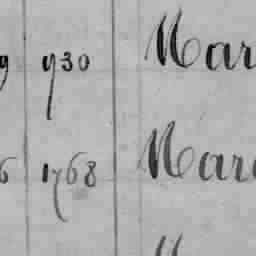 9 930 Mar
6 1768 Mar